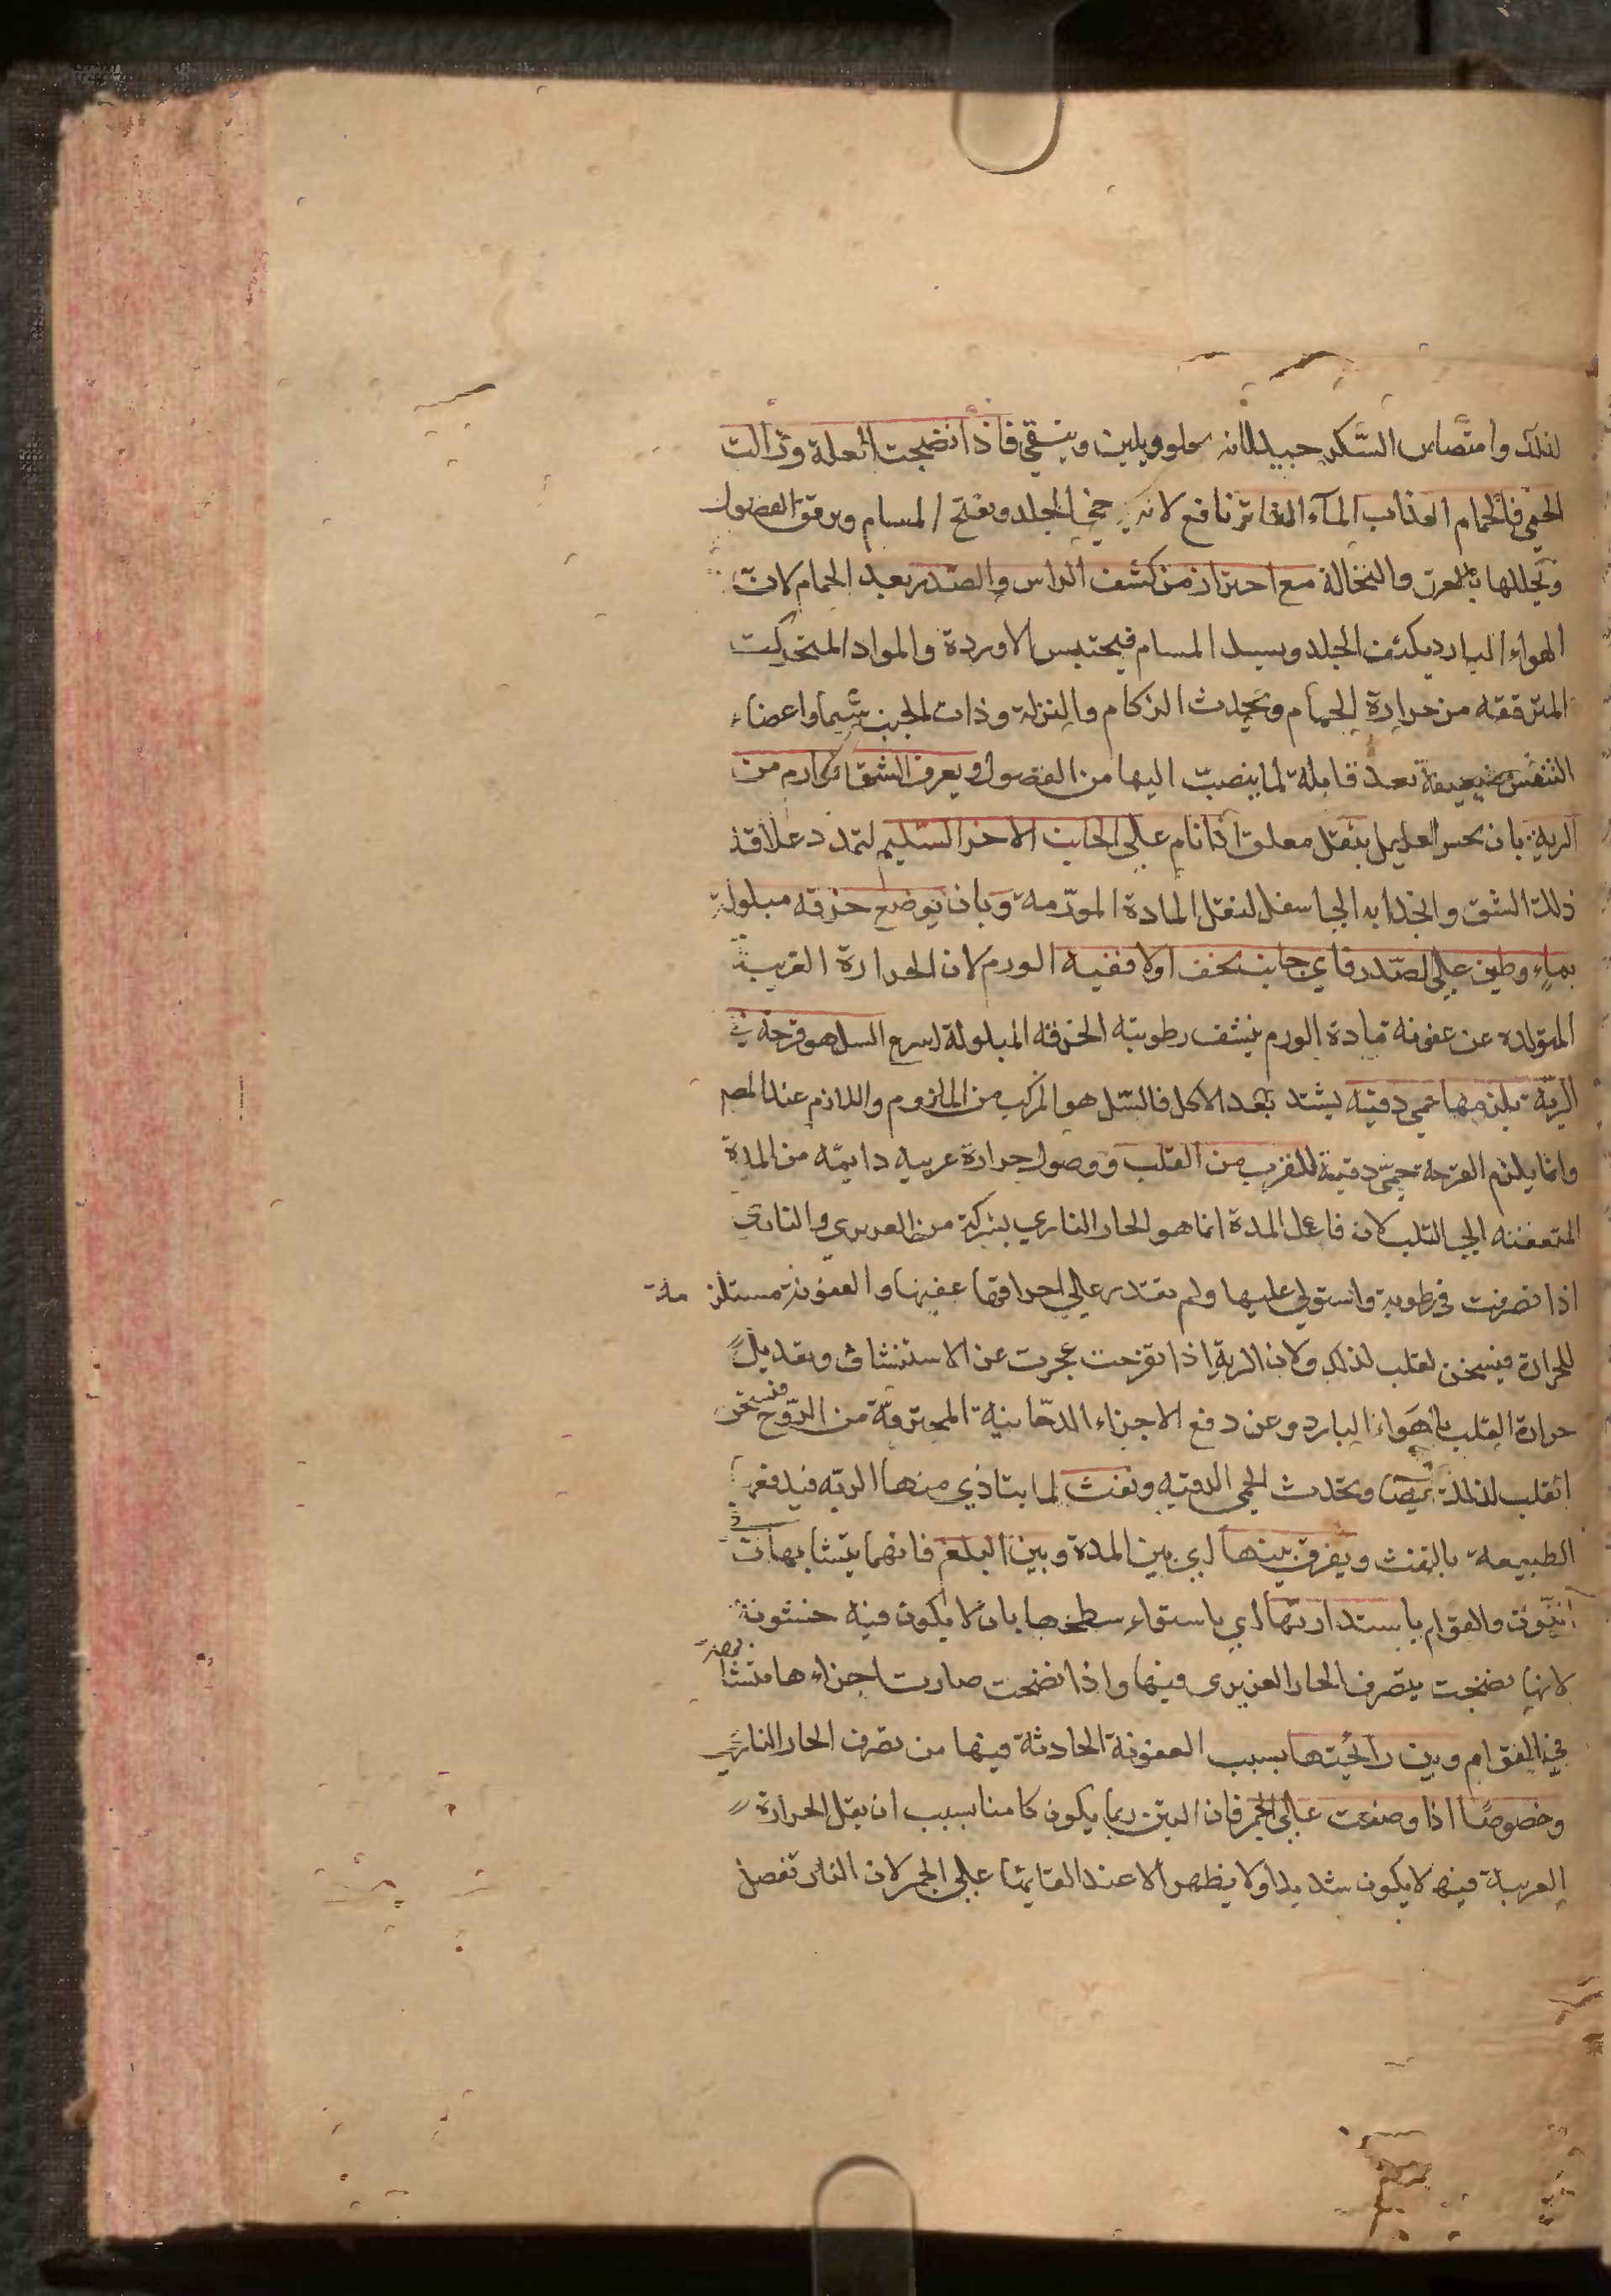 لذلك وامتصاص السكر جيد لانه حلو ويلين وينقي فاذا نضجت العلة وزالت
الحمي فالحمام العذاب المآء الفاتر نافع لانه يرخي الجلد ويفتح المسام ويرقق الفضول
ويحللها بالعرق والنخالة مع احتراز من كشف الراس والصدر بعد الحمام لان
الهواء البارد يكثف الجلد ويسد المسام فيحتبس الاوردة والمواد المتحركت
المترققه من حرارة الحمام ويحدث الزكام والنزلة وذات الجنب سيما واعضاء
التنفس ضعيفة بعد قابلة لما ينصب اليها من الفضول ويعرف الشق الوارم من
الرية بان يحس العليل بثقل معلق اذا نام علي الجانب الاخر السليم لتمدد علاقة
ذلك الشق وانجذابه الي اسفل لثقل المادة المورمة وبان يوضع خرقه مبلولة
بماء وطين علي الصدر فاي جانب يجف اولا ففيه الورم لان الحرارة الغريبة
المتولده عن عفونه مادة الورم ينشف رطوبته الخرقه المبلولة اسرع السل هو قرحة في
الرية يلزمها حمي دقيه يشتد بعد الاكل فالسل هو المركب من الملزوم واللازم عند المص
وانما يلزم القرحة حمي دقية للقرب من القلب ووصول حرارة غريبه دايمه من المدة
المتعفنه الي القلب لان فاعل المدة انما هو الحار الناري بشركة من الغريزي والناري
اذا تصرفت في رطوبة واستولي عليها ولم يقتدر علي احراقها عفنها والعفونة مستلزمة
للحرارة فيسخن لقلب لذلك ولان الرية اذا تقرحت عجزت عن الاستنشاق وتعديل
حرارة القلب بالهواء البارد وعن دفع الاجزاء الدخانية المحترقة من الروح فيسخن
القلب لذلك ايضا ويحدث الحمي الدقيه ونفث لما يتاذي منها الريه فيدفعها
الطبيعة بالنفث ويفرق بينها اي بين المدة وبين البلغم فانهما يتشابهان
في اللون والقوام باستدارتها اي باستواء سطحها بان لا يكون فيه خشونة
لانها نضجت بتصرف الحار الغريزي فيها واذا نضجت صارت اجزاءها متشابهة
في القوام وبنتن رائحتها بسبب العفونة الحادثة فيها من تصرف الحار الناري
وخصوصا اذا وضعت علي الجمر فان النتن ربما يكون كامنا بسبب ان تقل الحرارة
الغريبة فيه لا يكون شديدا ولا يظهر الا عند القائها علي الجمر لان النار تفصل